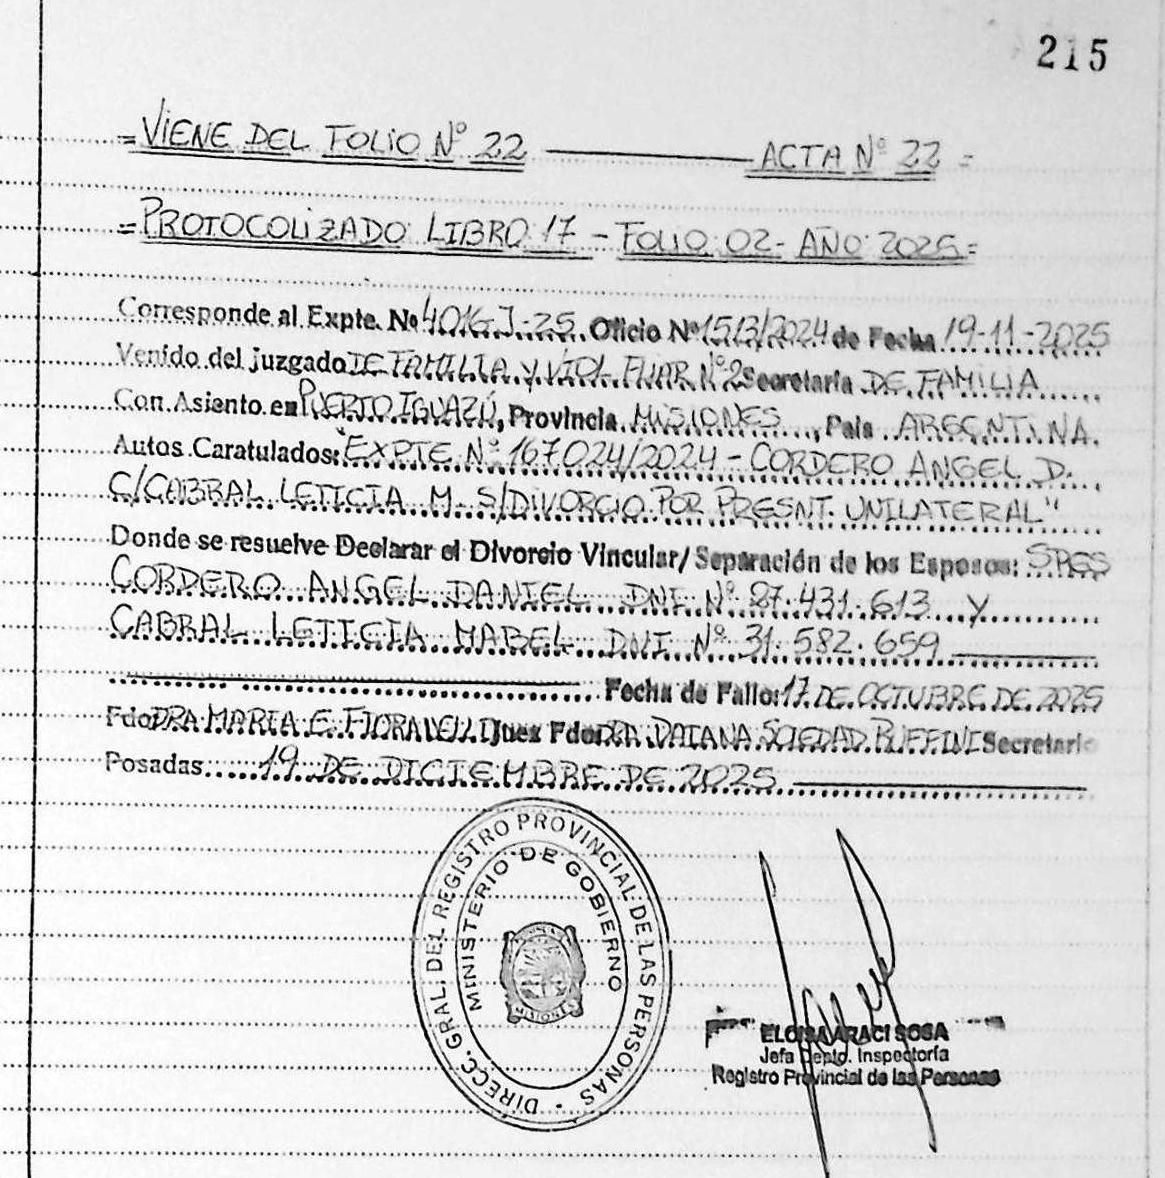 215
=VIENE DEL FOLIO Nº 22 ——— ACTA Nº 22 =
=PROTOCOLIZADO LIBRO 17 - FOLIO 02- AÑO 2025=
Corresponde al Expte. Nº 4016-J-25. Oficio Nº 1513/2024 de Fecha 19-11-2025
Venido del juzgado DE FAMILIA Y VIOL FLIAR Nº 2 Secretaría DE FAMILIA
Con Asiento en PUERTO IGUAZÚ, Provincia MISIONES, País ARGENTINA.
Autos Caratulados: "EXPTE Nº 167024/2024 - CORDERO ANGEL D.
C/CABRAL LETICIA M- S/DIVORCIO POR PRESNT. UNILATERAL"
Donde se resuelve Declarar el Divorcio Vincular/ Separación de los Esposos: SRES
CORDERO ANGEL DANIEL DNI Nº 27.431.613 Y
CABRAL LETICIA MABEL DNI Nº 31.582.659
Fecha de Fallo: 17 DE OCTUBRE DE 2025
Fdo DRA MARIA E. Juez Fdo: DRA. DAIANA SOLEDAD RUFFINI Secretario
Posadas 19 DE DICIEMBRE DE 2025
DIRECC. GRAL. DEL REGISTRO PROVINCIAL DE LAS PERSONAS
MINISTERIO DE GOBIERNO
MISIONES
ELOISA ARACI SOSA
Jefa Depto. Inspectoría
Registro Provincial de las Personas